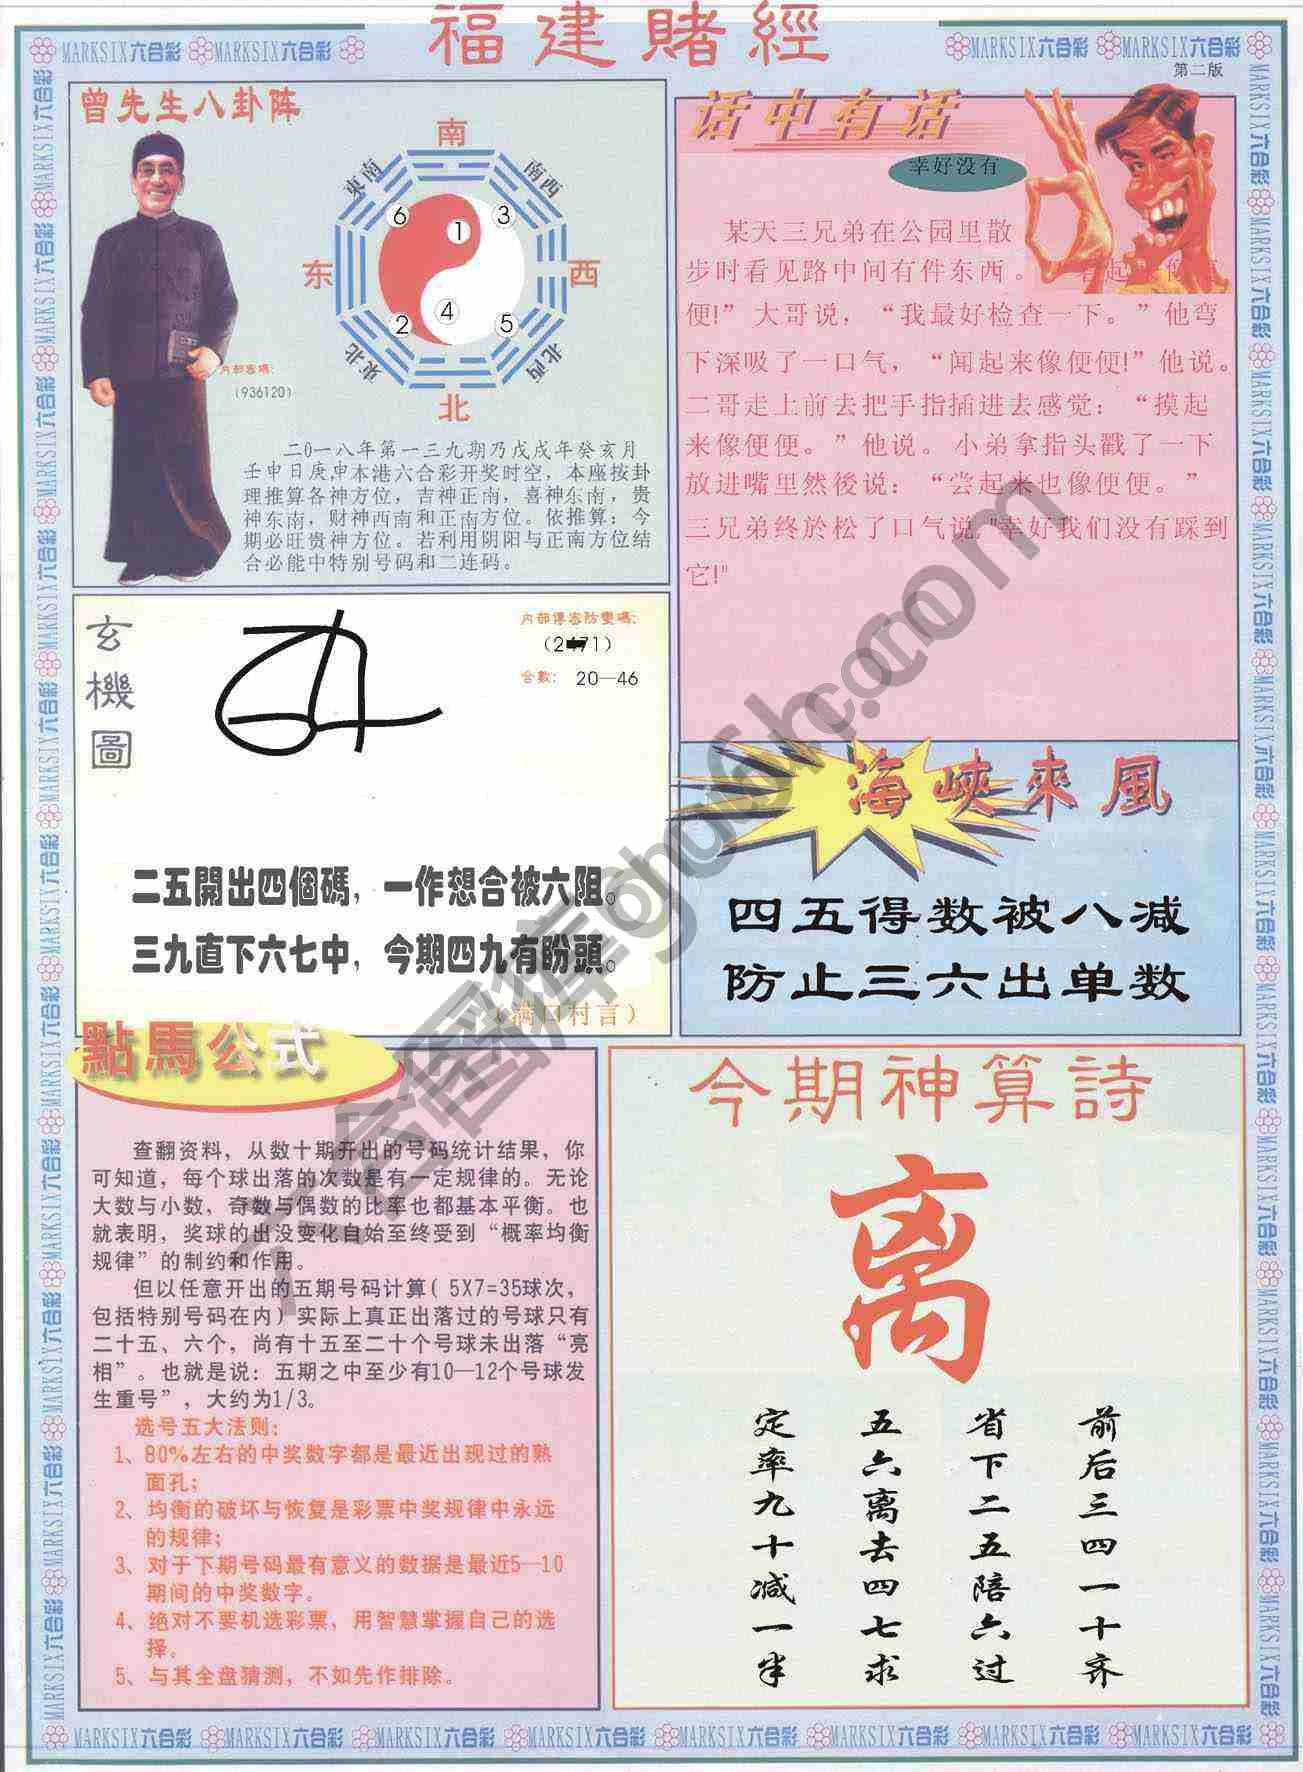 福建賭經
MARKSIX六合彩 MARKSIX六合彩
MARKSIX六合彩 MARKSIX六合彩
第二版
曾先生八卦阵
南
東南
南西
6
1
3
东
西
4
2
5
東北
北西
北
内部密碼:
(936120)
二〇一八年第一三九期乃戊戌年癸亥月
壬申日庚申本港六合彩开奖时空，本座按卦
理推算各神方位，吉神正南，喜神东南，贵
神东南，财神西南和正南方位。依推算：今
期必旺贵神方位。若利用阴阳与正南方位结
合必能中特别号码和二连码。
话中有话
幸好没有
某天三兄弟在公园里散
步时看见路中间有件东西。
便!”大哥说，“我最好检查一下。”他弯
下深吸了一口气，“闻起来像便便!”他说。
二哥走上前去把手指插进去感觉：“摸起
来像便便。”他说。小弟拿指头戳了一下
放进嘴里然後说：“尝起来也像便便。”
三兄弟终於松了口气说,"幸好我们没有踩到
它!"
玄機圖
内部傳密防變碼:
合數: 20—46
二五開出四個碼，一作想合被六阻。
三九直下六七中，今期四九有盼頭。
（满口村言）
海峽來風
四五得数被八减
防止三六出单数
點馬公式
查翻资料，从数十期开出的号码统计结果，你
可知道，每个球出落的次数是有一定规律的。无论
大数与小数，奇数与偶数的比率也都基本平衡。也
就表明，奖球的出没变化自始至终受到“概率均衡
规律”的制约和作用。
但以任意开出的五期号码计算( 5X7=35球次，
包括特别号码在内）实际上真正出落过的号球只有
二十五、六个，尚有十五至二十个号球未出落“亮
相”。也就是说：五期之中至少有10—12个号球发
生重号”，大约为1/3。
选号五大法则：
1、80%左右的中奖数字都是最近出现过的熟
面孔；
2、均衡的破坏与恢复是彩票中奖规律中永远
的规律；
3、对于下期号码最有意义的数据是最近5—10
期间的中奖数字。
4、绝对不要机选彩票，用智慧掌握自己的选
择。
5、与其全盘猜测，不如先作排除。
今期神算詩
离
前后三四一十齐
省下二五陪六过
五六离去四七求
定率九十减一半
MARKSIX六合彩 MARKSIX六合彩 MARKSIX六合彩 MARKSIX六合彩 MARKSIX六合彩 MARKSIX六合彩 MARKSIX六合彩 MARKSIX六合彩